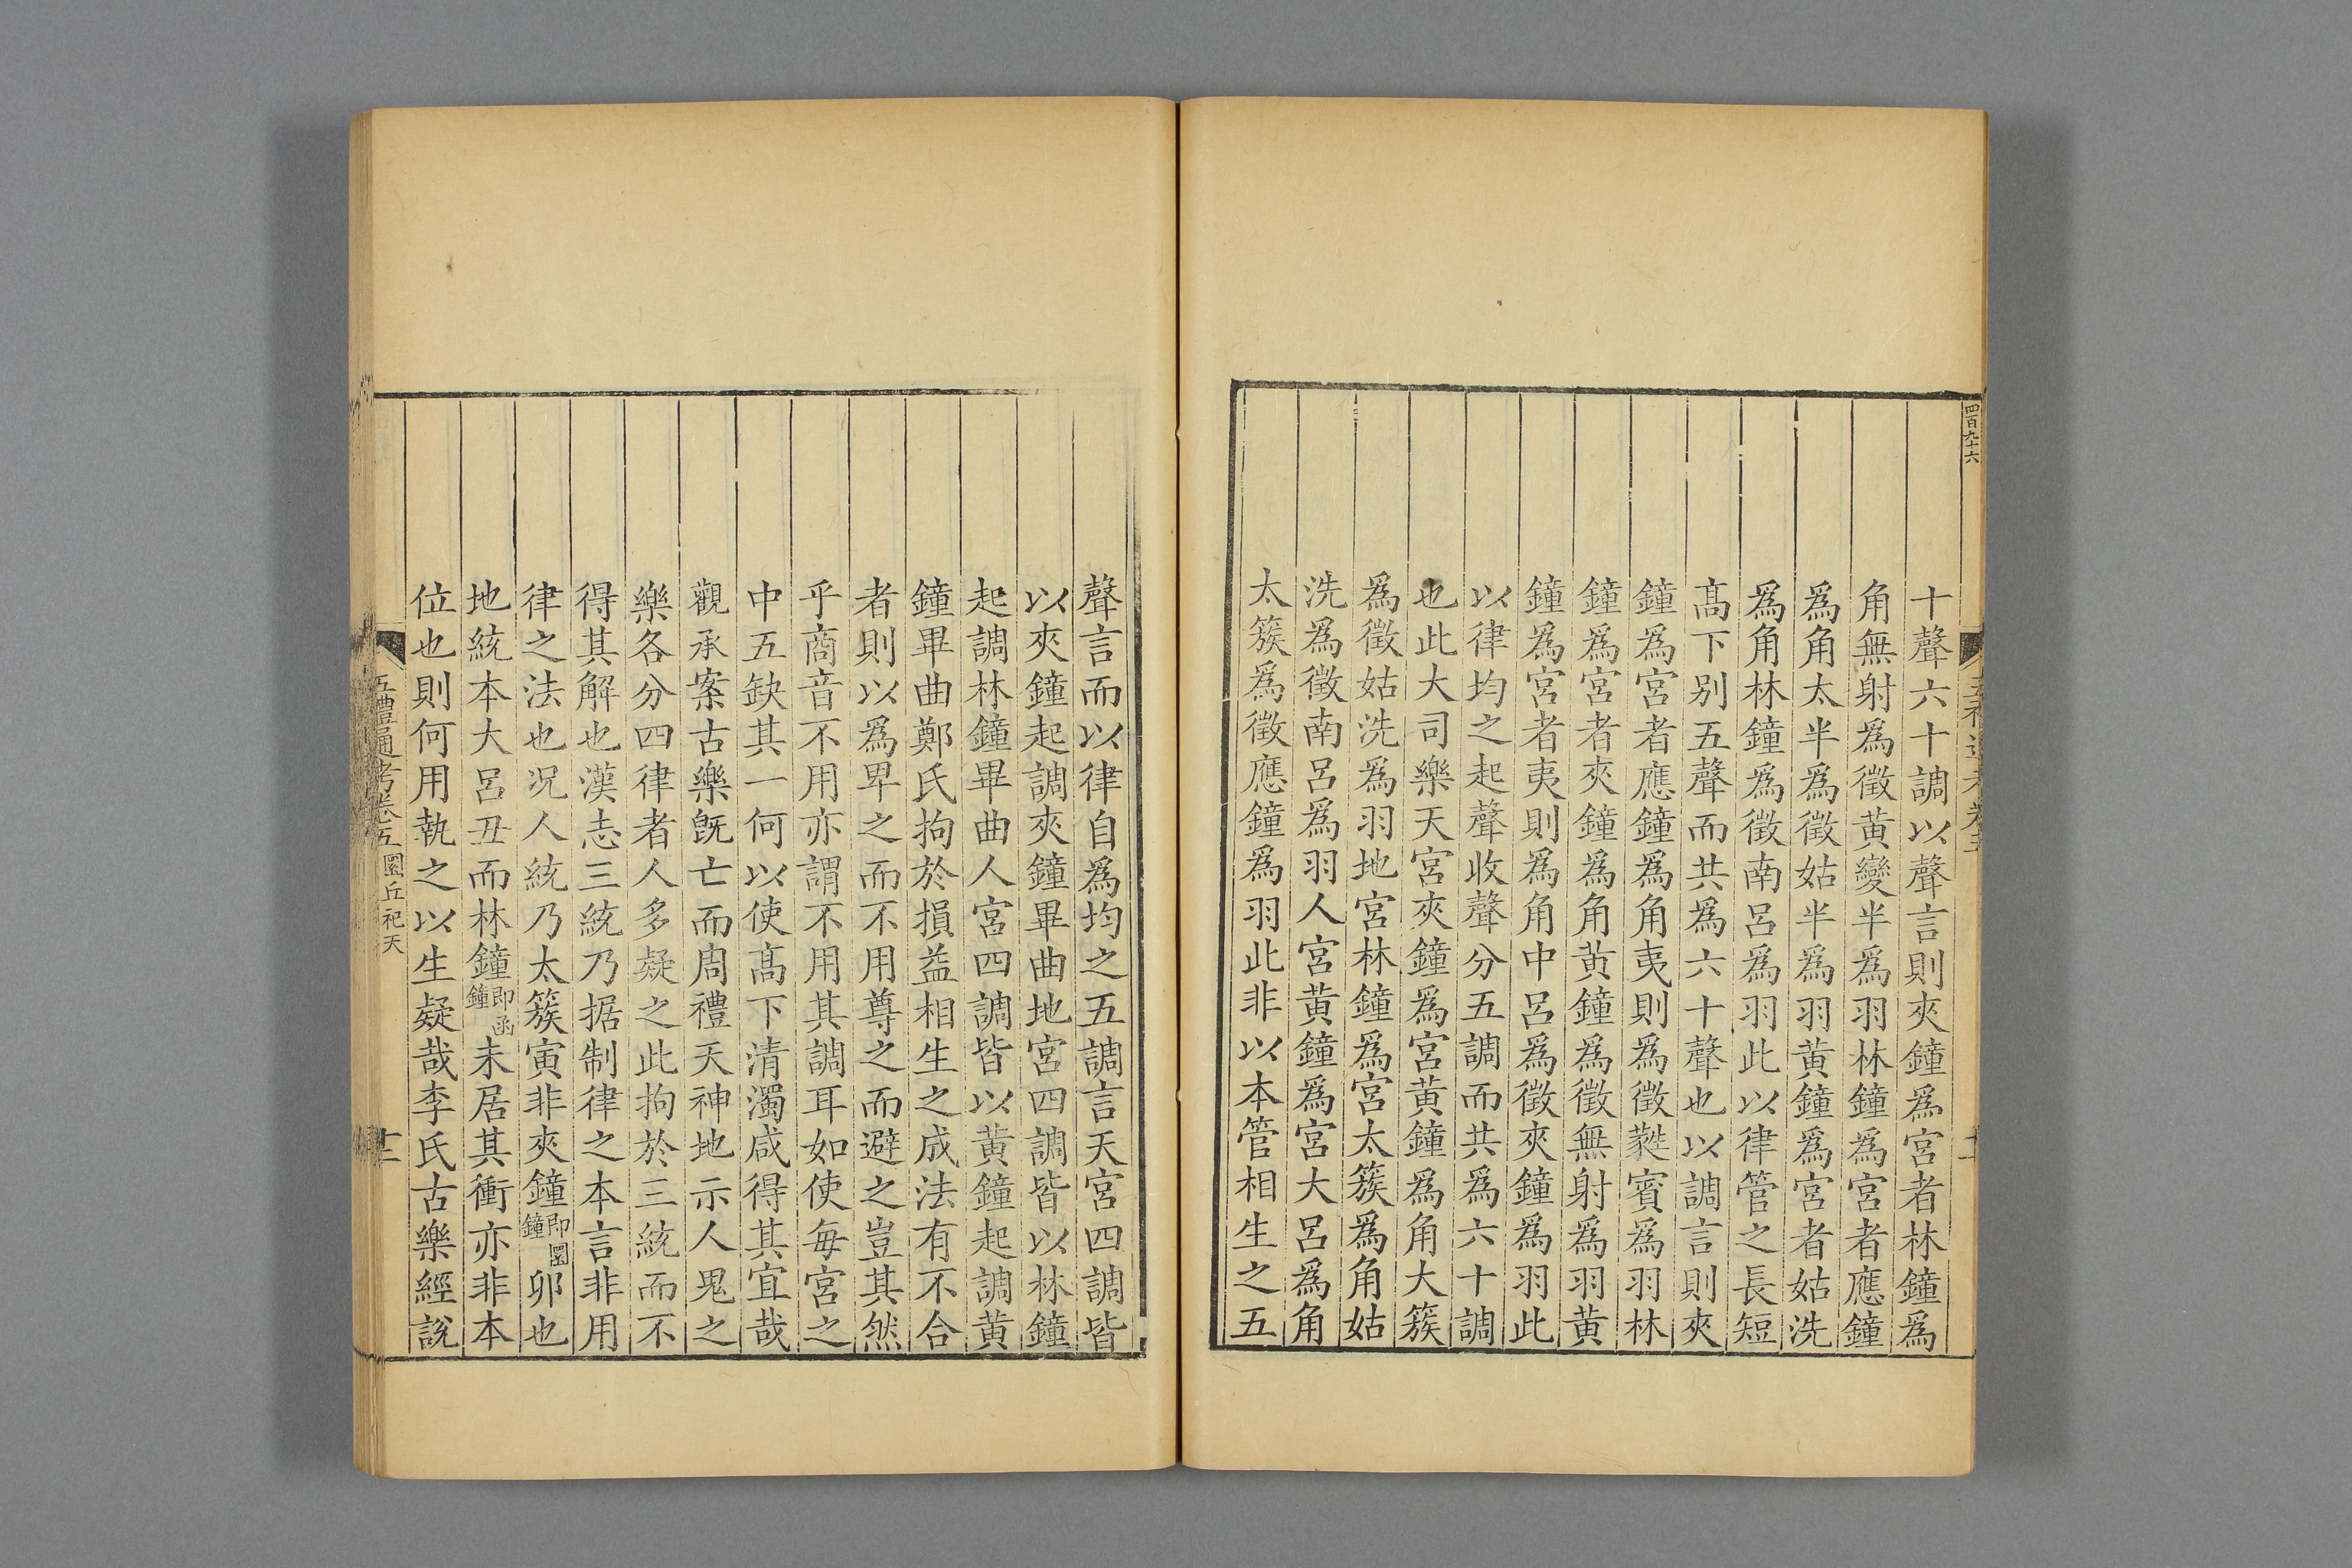 四百九十六
十聲六十調以聲言則夾鐘爲宮者林鐘爲
角無射爲徵黃變半爲羽林鐘爲宮者應鐘
爲角太半爲徵姑半爲羽黃鐘爲宮者姑洗
爲角林鐘爲徵南呂爲羽此以律管之長短
髙下别五聲而共爲六十聲也以調言則夾
鐘爲宮者應鐘爲角夷則爲徵蕤賓爲羽林
鐘爲宮者夾鐘爲角黃鐘爲徵無射爲羽黃
鐘爲宮者夷則爲角中呂爲徵夾鐘爲羽此
以律均之起聲收聲分五調而共爲六十調
也此大司樂天宮夾鐘爲宮黃鐘爲角大簇
爲徵姑洗爲羽地宮林鐘爲宮太簇爲角姑
洗爲徵南呂爲羽人宮黃鐘爲宮大呂爲角
太簇爲徵應鐘爲羽此非以本管相生之五
聲言而以律自爲均之五調言天宮四調皆
以夾鐘起調夾鐘畢曲地宮四調皆以林鐘
起調林鐘畢曲人宮四調皆以黃鐘起調黃
鐘畢曲鄭氏拘於損益相生之成法有不合
者則以爲卑之而不用尊之而避之豈其然
乎商音不用亦謂不用其調耳如使每宮之
中五缺其一何以使髙下清濁咸得其宜哉
觀承案古樂旣亡而周禮天神地示人鬼之
樂各分四律者人多疑之此拘於三統而不
得其解也漢志三統乃据制律之本言非用
律之法也况人統乃太簇寅非夾鐘即圜鐘卯也
地統本大呂丑而林鐘即函鐘未居其衝亦非本
位也則何用執之以生疑哉李氏古樂經說
五禮通考卷五 圜丘祀天 十二